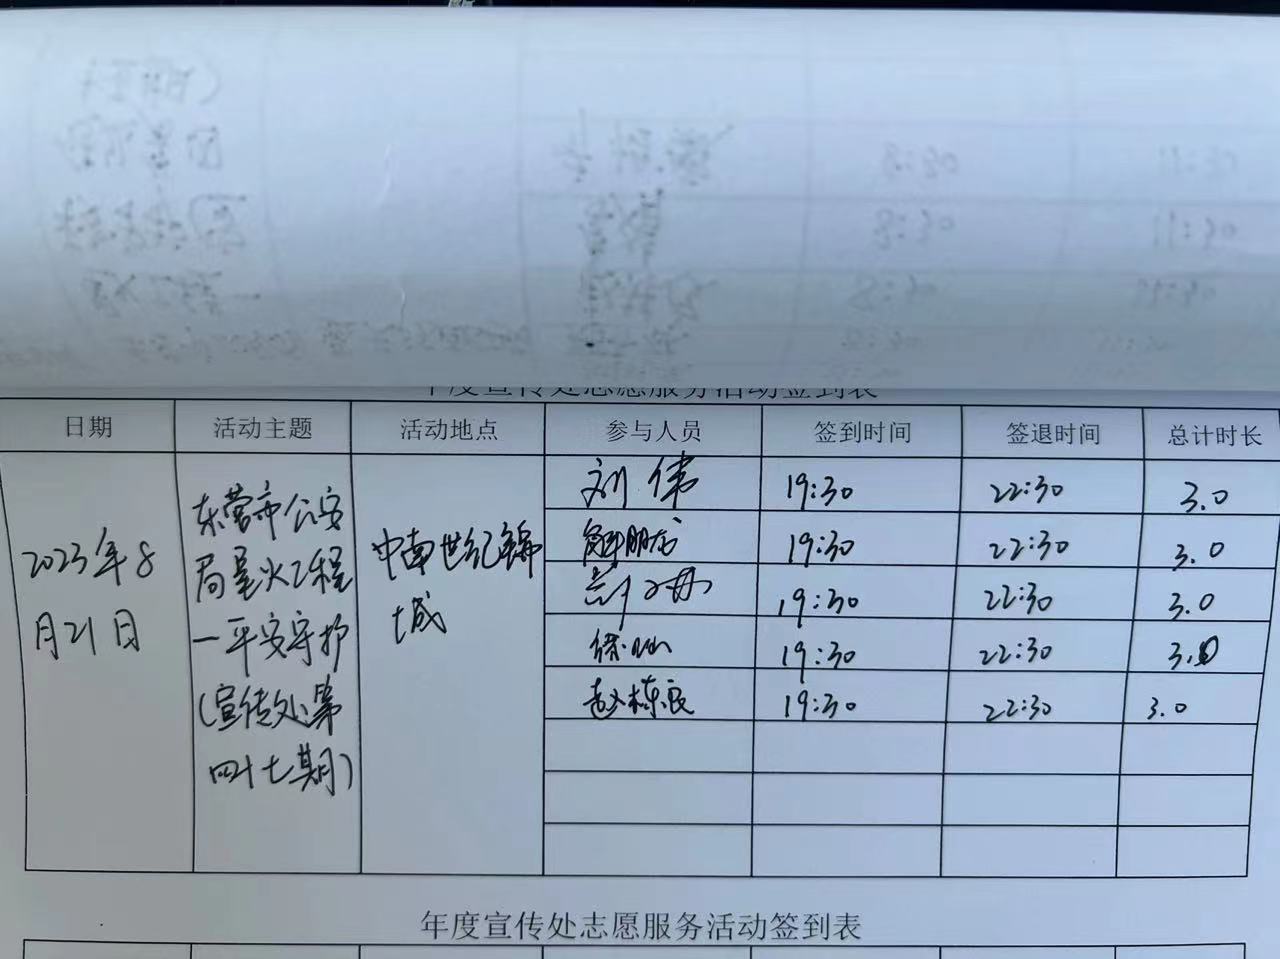 年度宣传处志愿服务活动签到表
日期 活动主题 活动地点 参与人员 签到时间 签退时间 总计时长
2023年8
月21日
东营市公安
局星火工程
一平安守护
(宣传处第
四十七期)
中南世纪锦
城
刘伟 19:30 22:30 3.0
解朋龙 19:30 22:30 3.0
19:30 22:30 3.0
徐灿 19:30 22:30 3.0
赵栋良 19:30 22:30 3.0
年度宣传处志愿服务活动签到表